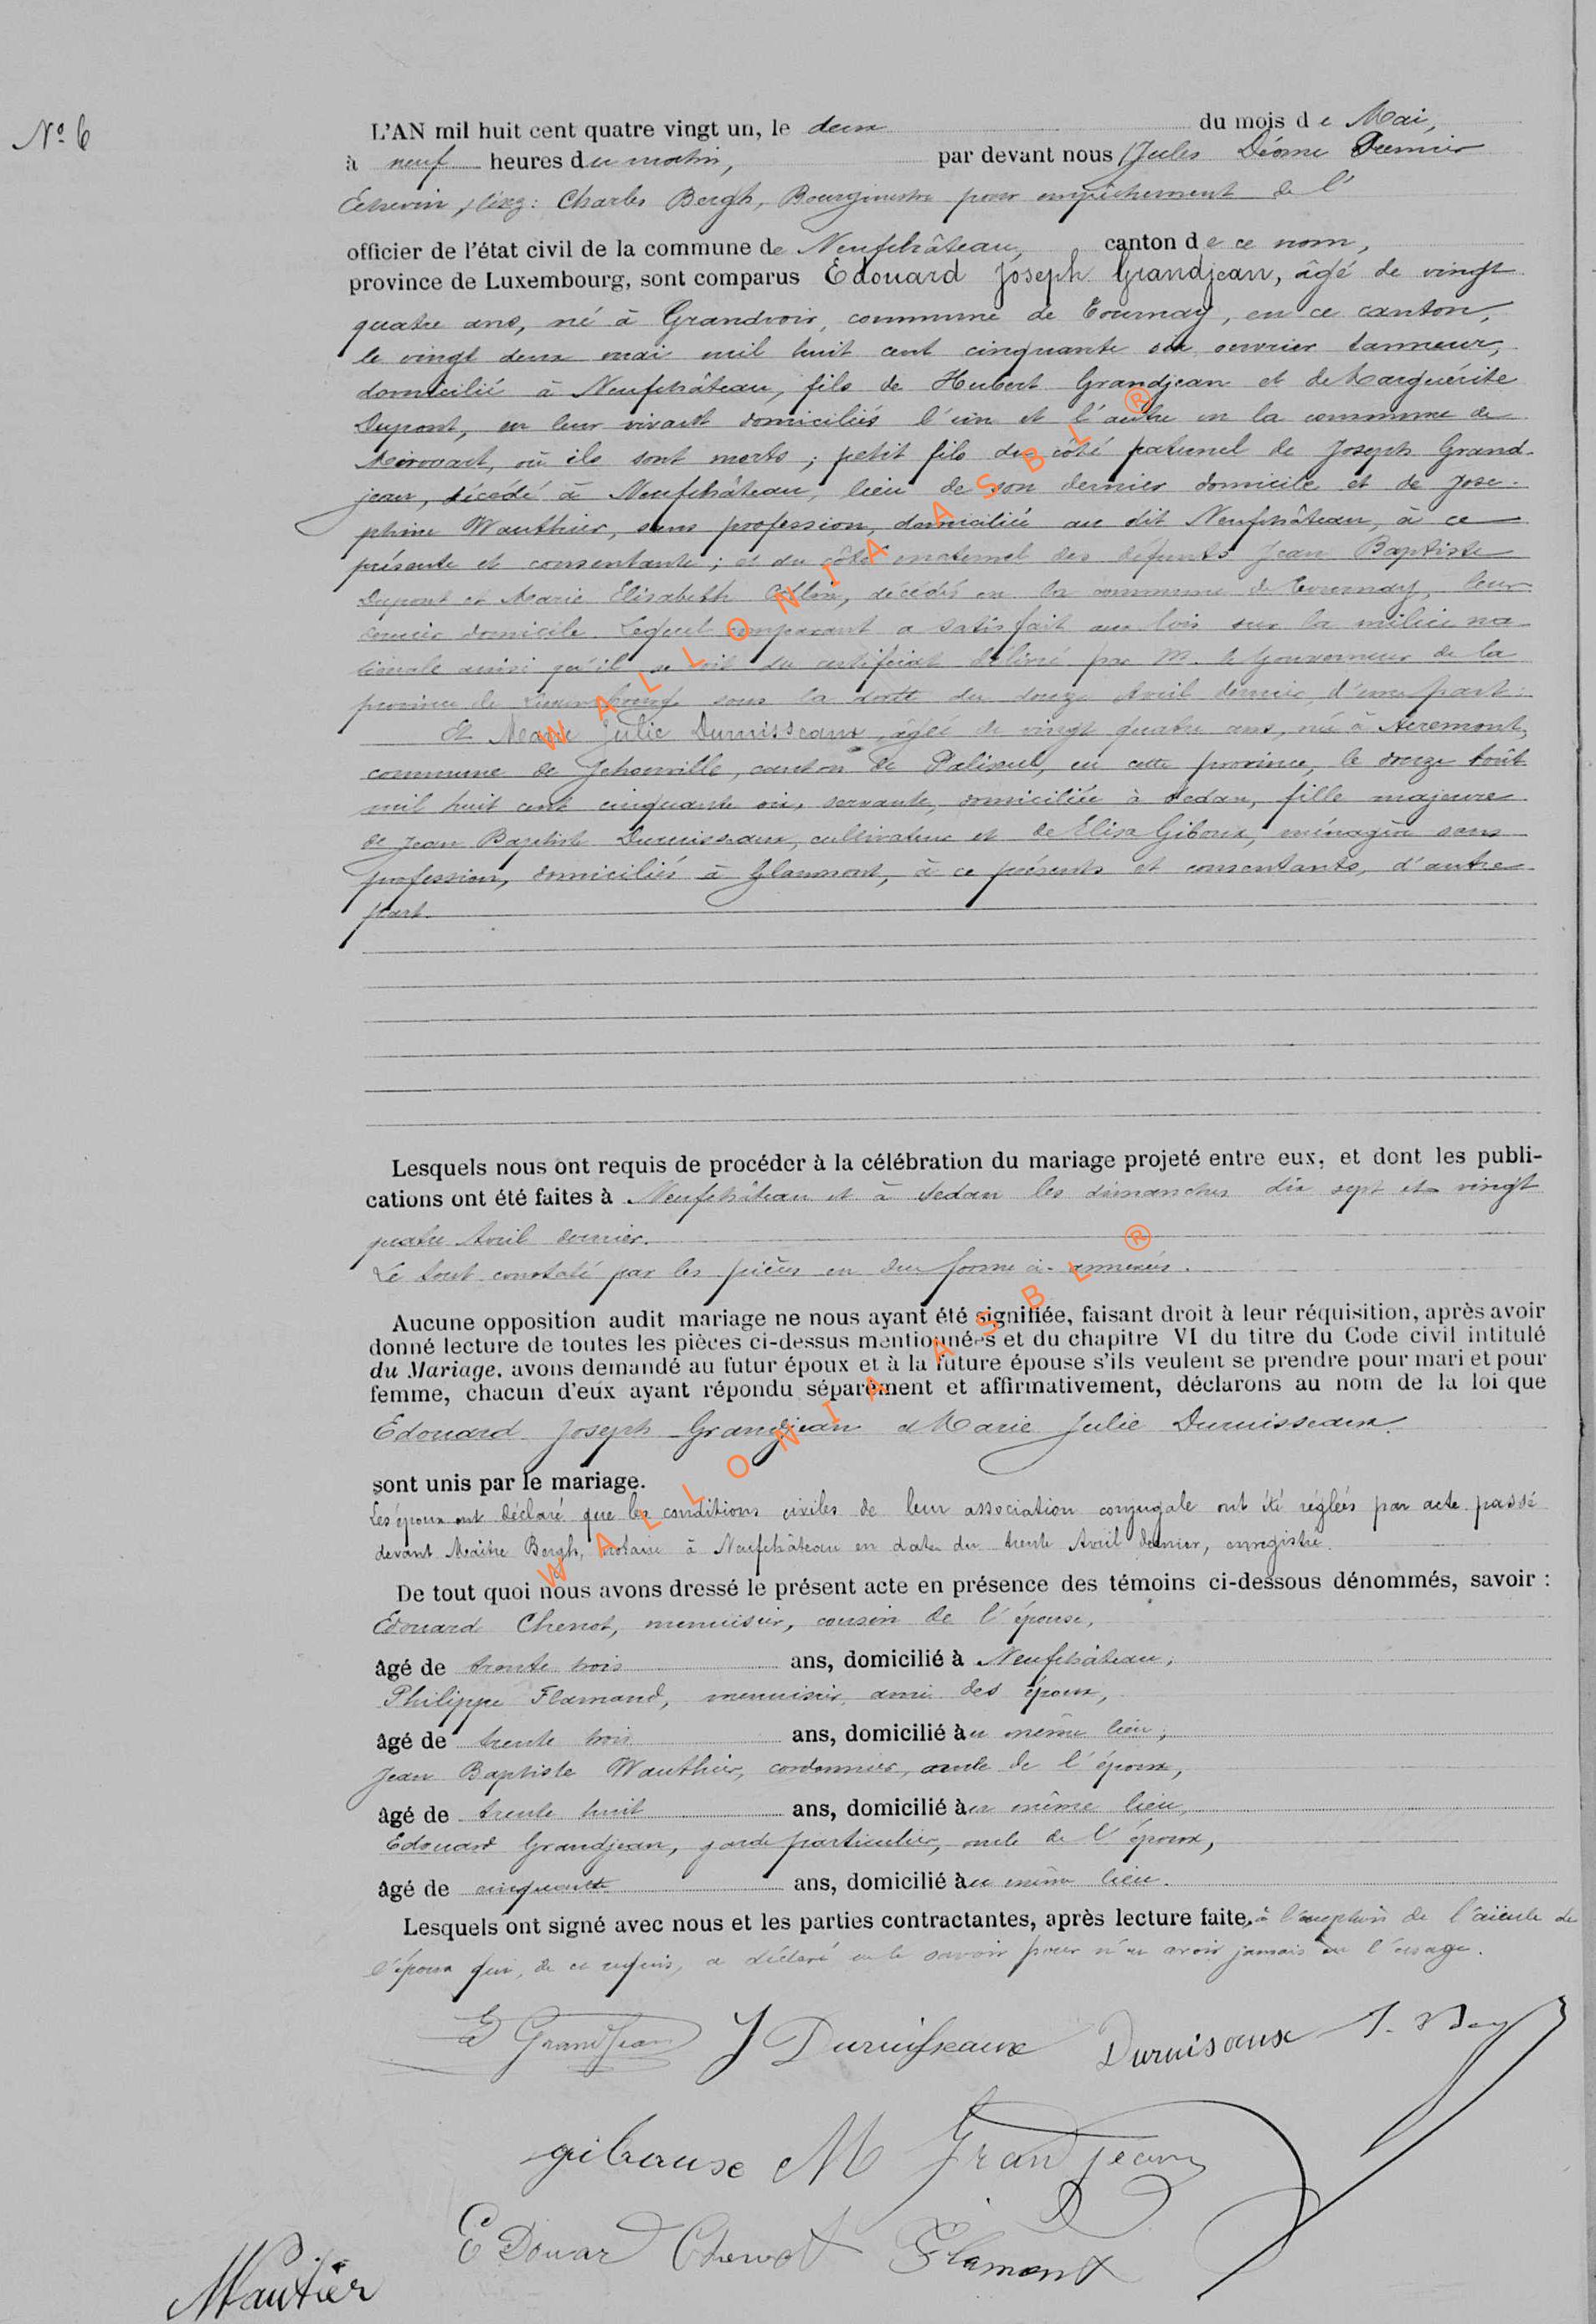 No 6
L'AN mil huit cent quatre vingt un, le deux du mois de Mai,
à neuf heures du matin, par devant nous Jules Premier
Echevin, Charles Bergh, Bourgmestre pour empêchement de l'
officier de l'état civil de la commune de Neufchâteau, canton de ce nom,
province de Luxembourg, sont comparus Edouard Joseph Grandjean, âgé de vingt
quatre ans, né à Grandvoir, commune de Tournay, en ce canton,
le vingt deux mai mil huit cent cinquante six, ouvrier tanneur,
domicilié à Neufchâteau, fils de Hubert Grandjean et de Marguérite
Dupont, en leur vivant domiciliés l'un et l'autre en la commune de
Mirwart, où ils sont morts; petit fils du côté paternel de Joseph Grand-
jean, décédé à Neufchâteau, lieu de son dernier domicile et de José-
phine Wauthier, sans profession, domiciliée au dit Neufchâteau, à ce
présente et consentante; et du côté maternel des défunts Jean Baptiste
Dupont et Marie Elisabeth Collin, décédés en la commune de Tournay, leur
dernier domicile. Lequel comparant a satisfait aux lois sur la milice na-
tionale ainsi qu'il se voit du certificat délivré par M. le Gouverneur de la
province de Luxembourg sous la date du douze Avril dernier, d'une part:
Et Marie Julie Duruisseaux, âgée de vingt quatre ans, née à Acremont,
commune de Jehonville, canton de Paliseul, en cette province, le douze Août
mil huit cent cinquante six, servante, domiciliée à Sedan, fille majeure
de Jean Baptiste Duruisseaux, cultivateur et de Elisa Giboux, ménagère sans
profession, domiciliés à Glaumont, à ce présents et consentants, d'autre
part.
Lesquels nous ont requis de procéder à la célébration du mariage projeté entre eux, et dont les publi-
cations ont été faites à Neufchâteau et à Sedan les dimanches dix sept et vingt
quatre Avril dernier.
Le tout constaté par les pièces en due forme ci-annexées.
Aucune opposition audit mariage ne nous ayant été signifiée, faisant droit à leur réquisition, après avoir
donné lecture de toutes les pièces ci-dessus mentionnées et du chapitre VI du titre du Code civil intitulé
du Mariage, avons demandé au futur époux et à la future épouse s'ils veulent se prendre pour mari et pour
femme, chacun d'eux ayant répondu séparément et affirmativement, déclarons au nom de la loi que
Edouard Joseph Grandjean et Marie Julie Duruisseaux
sont unis par le mariage.
Les époux ont déclaré que les conditions civiles de leur association conjugale ont été réglées par acte passé
devant Maître Bergh, notaire à Neufchâteau en date du trente Avril dernier, enregistré.
De tout quoi nous avons dressé le présent acte en présence des témoins ci-dessous dénommés, savoir :
Edouard Chenot, menuisier, cousin de l'épouse,
âgé de trente trois ans, domicilié à Neufchâteau,
Philippe Flamand, menuisier, ami des époux,
âgé de trente trois ans, domicilié au même lieu,
Jean Baptiste Wauthier, cordonnier, oncle de l'époux,
âgé de trente huit ans, domicilié au même lieu,
Edouard Grandjean, garde particulier, oncle de l'époux,
âgé de cinquante ans, domicilié au même lieu.
Lesquels ont signé avec nous et les parties contractantes, après lecture faite, à l'exception de l'aïeule de
l'époux qui, de ce requis, a déclaré ne le savoir pour n'en avoir jamais eu l'usage.
E GrandJean J Duruisseaux Duruisaux
gibouse M Grandjean
EDouard Chenot Flamant
Wautier
WALLONIA ASBL ®
WALLONIA ASBL ®